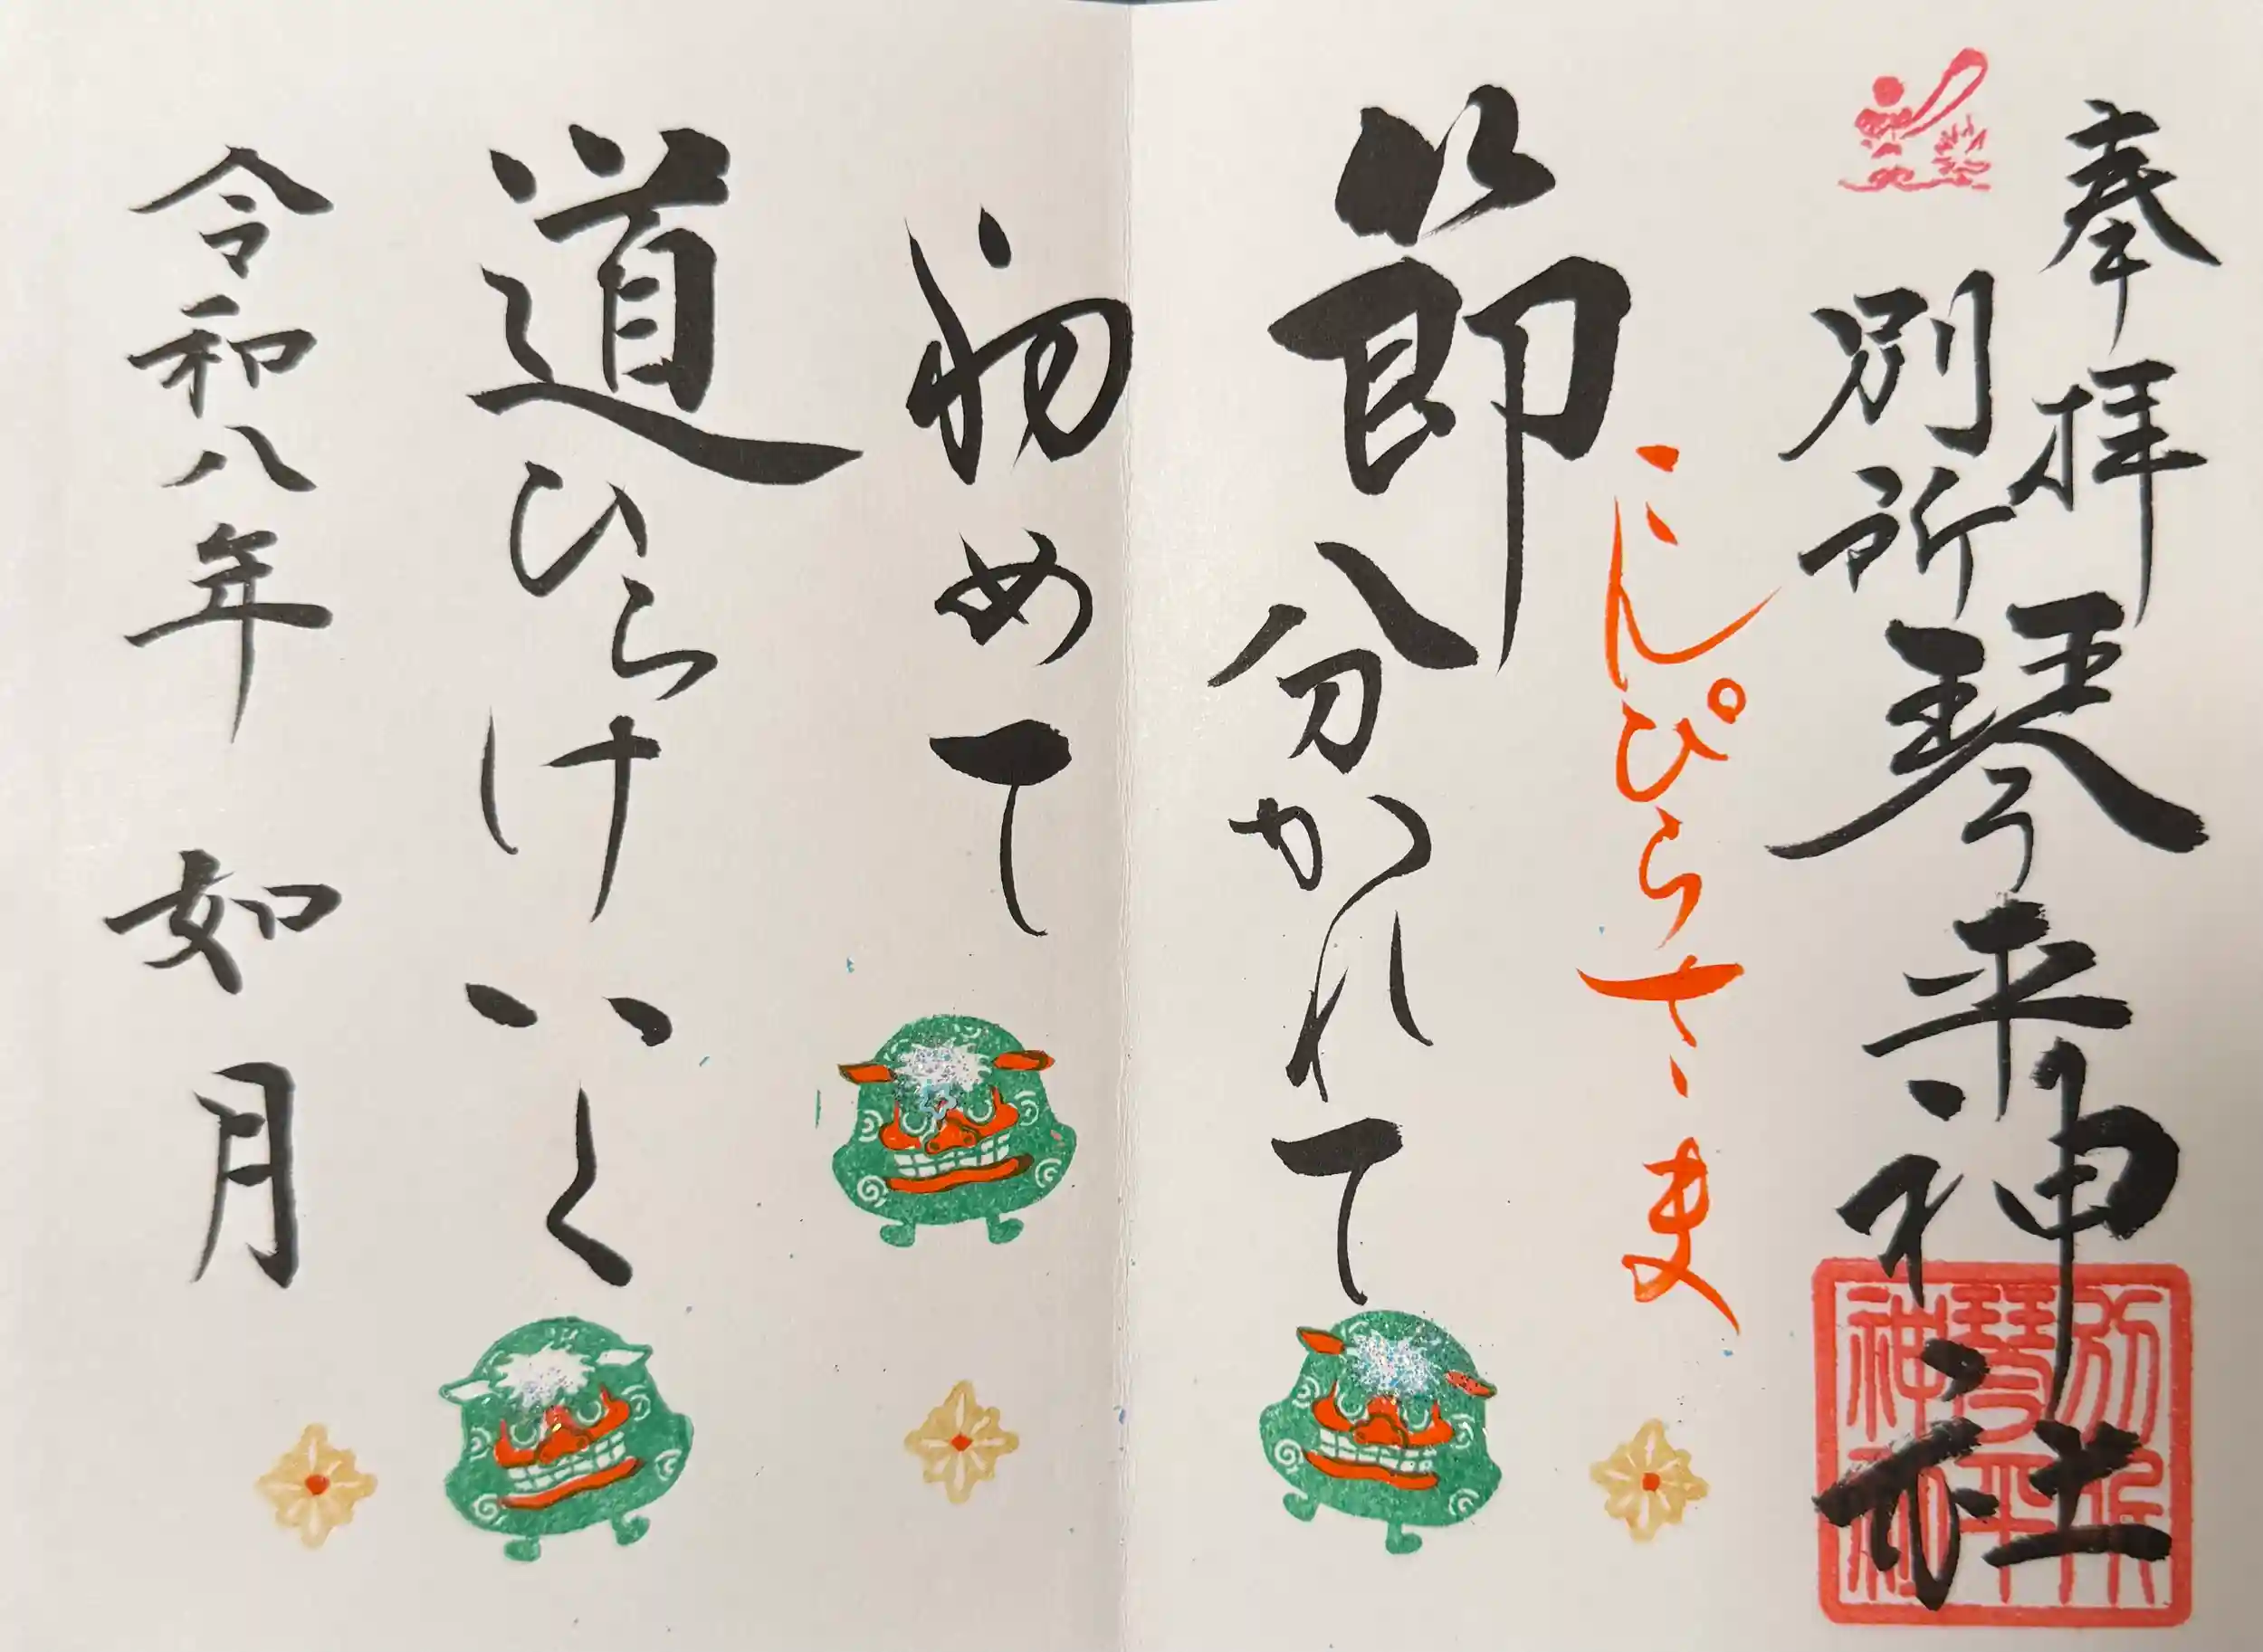 奉拝
別所琴平神社
こんぴらさま
節分かれて
初めて
道ひらけいく
令和八年 如月
別所
琴平
神社